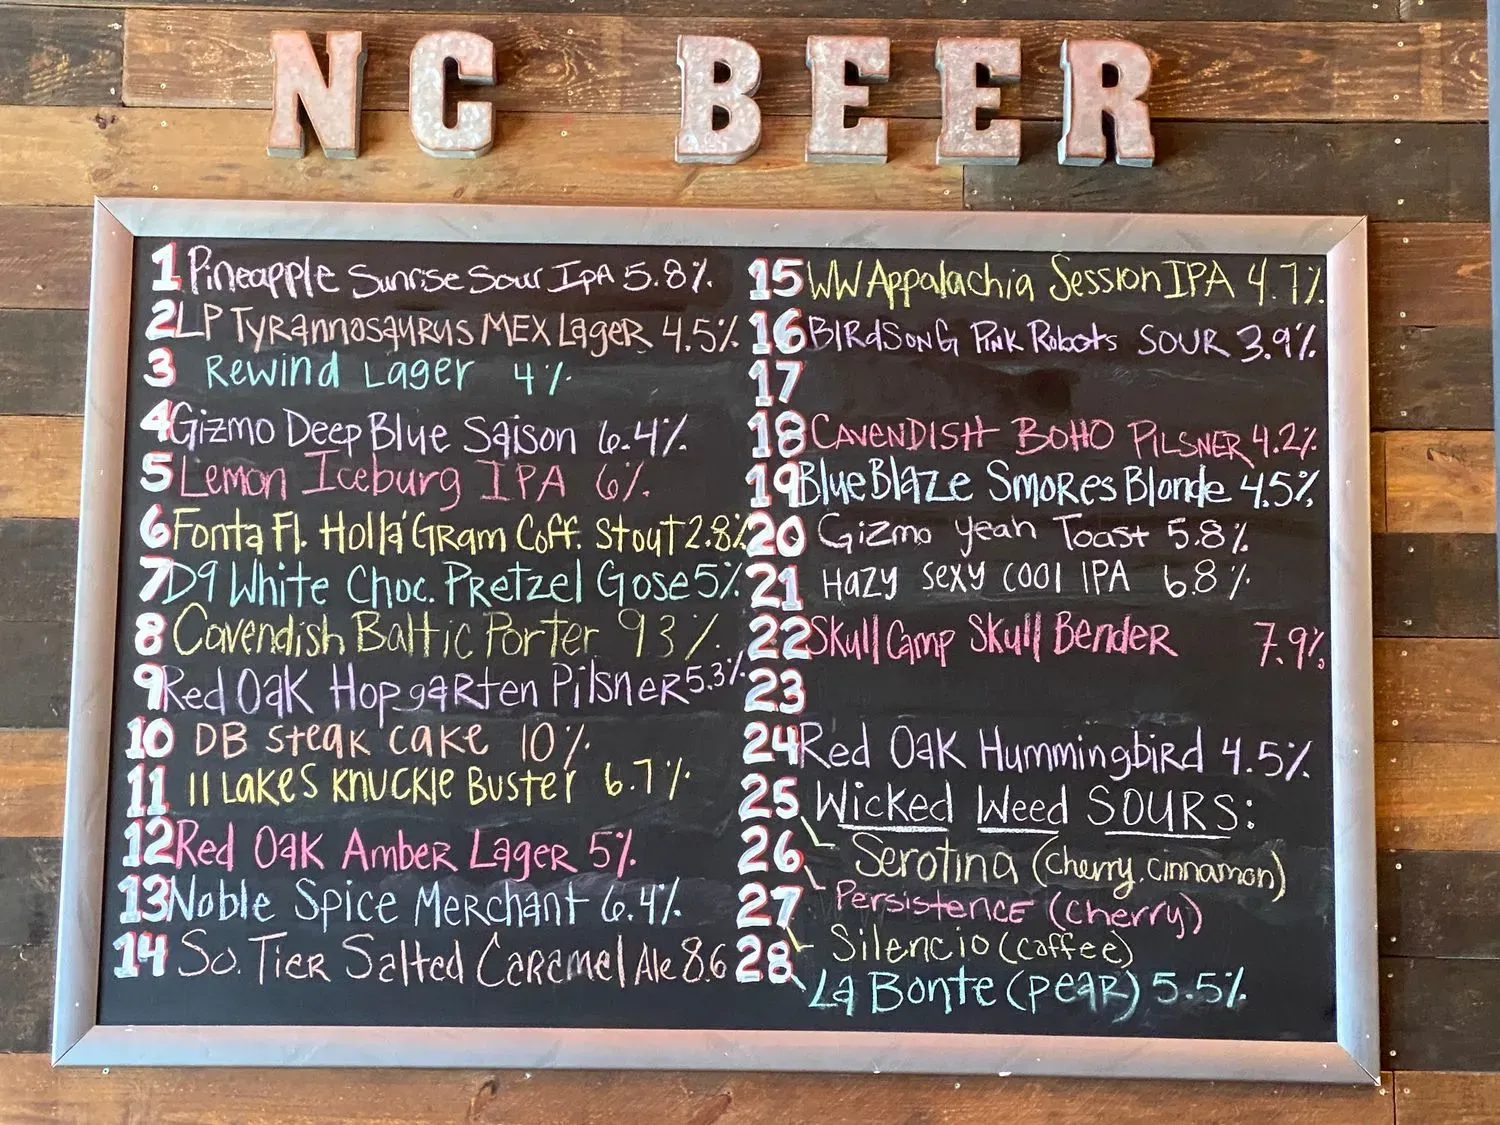 NC BEER
1 Pineapple Sunrise Sour IPA 5.8%
2 LP Tyrannosaurus MEX Lager 4.5%
3 Rewind Lager 4%
4 Gizmo Deep Blue Saison 6.4%
5 Lemon Iceburg IPA 6%
6 Fonta Fl. Holla' Gram Coff. Stout 2.8%
7 D9 White Choc. Pretzel Gose 5%
8 Cavendish Baltic Porter 9.3%
9 Red Oak Hopgarten Pilsner 5.3%
10 DB Steak Cake 10%
11 11 Lakes Knuckle Buster 6.7%
12 Red Oak Amber Lager 5%
13 Noble Spice Merchant 6.4%
14 So. Tier Salted Caramel Ale 8.6
15 WW Appalachia Session IPA 4.7%
16 Birdsong Pink Robots Sour 3.9%
17
18 Cavendish Boho Pilsner 4.2%
19 Blue Blaze Smores Blonde 4.5%
20 Gizmo Yeah Toast 5.8%
21 Hazy Sexy Cool IPA 6.8%
22 Skull Camp Skull Bender 7.9%
23
24 Red Oak Hummingbird 4.5%
25 Wicked Weed SOURS:
26 Serotina (cherry, cinnamon)
Persistence (cherry)
27 Silencio (coffee)
28 La Bonte (pear) 5.5%